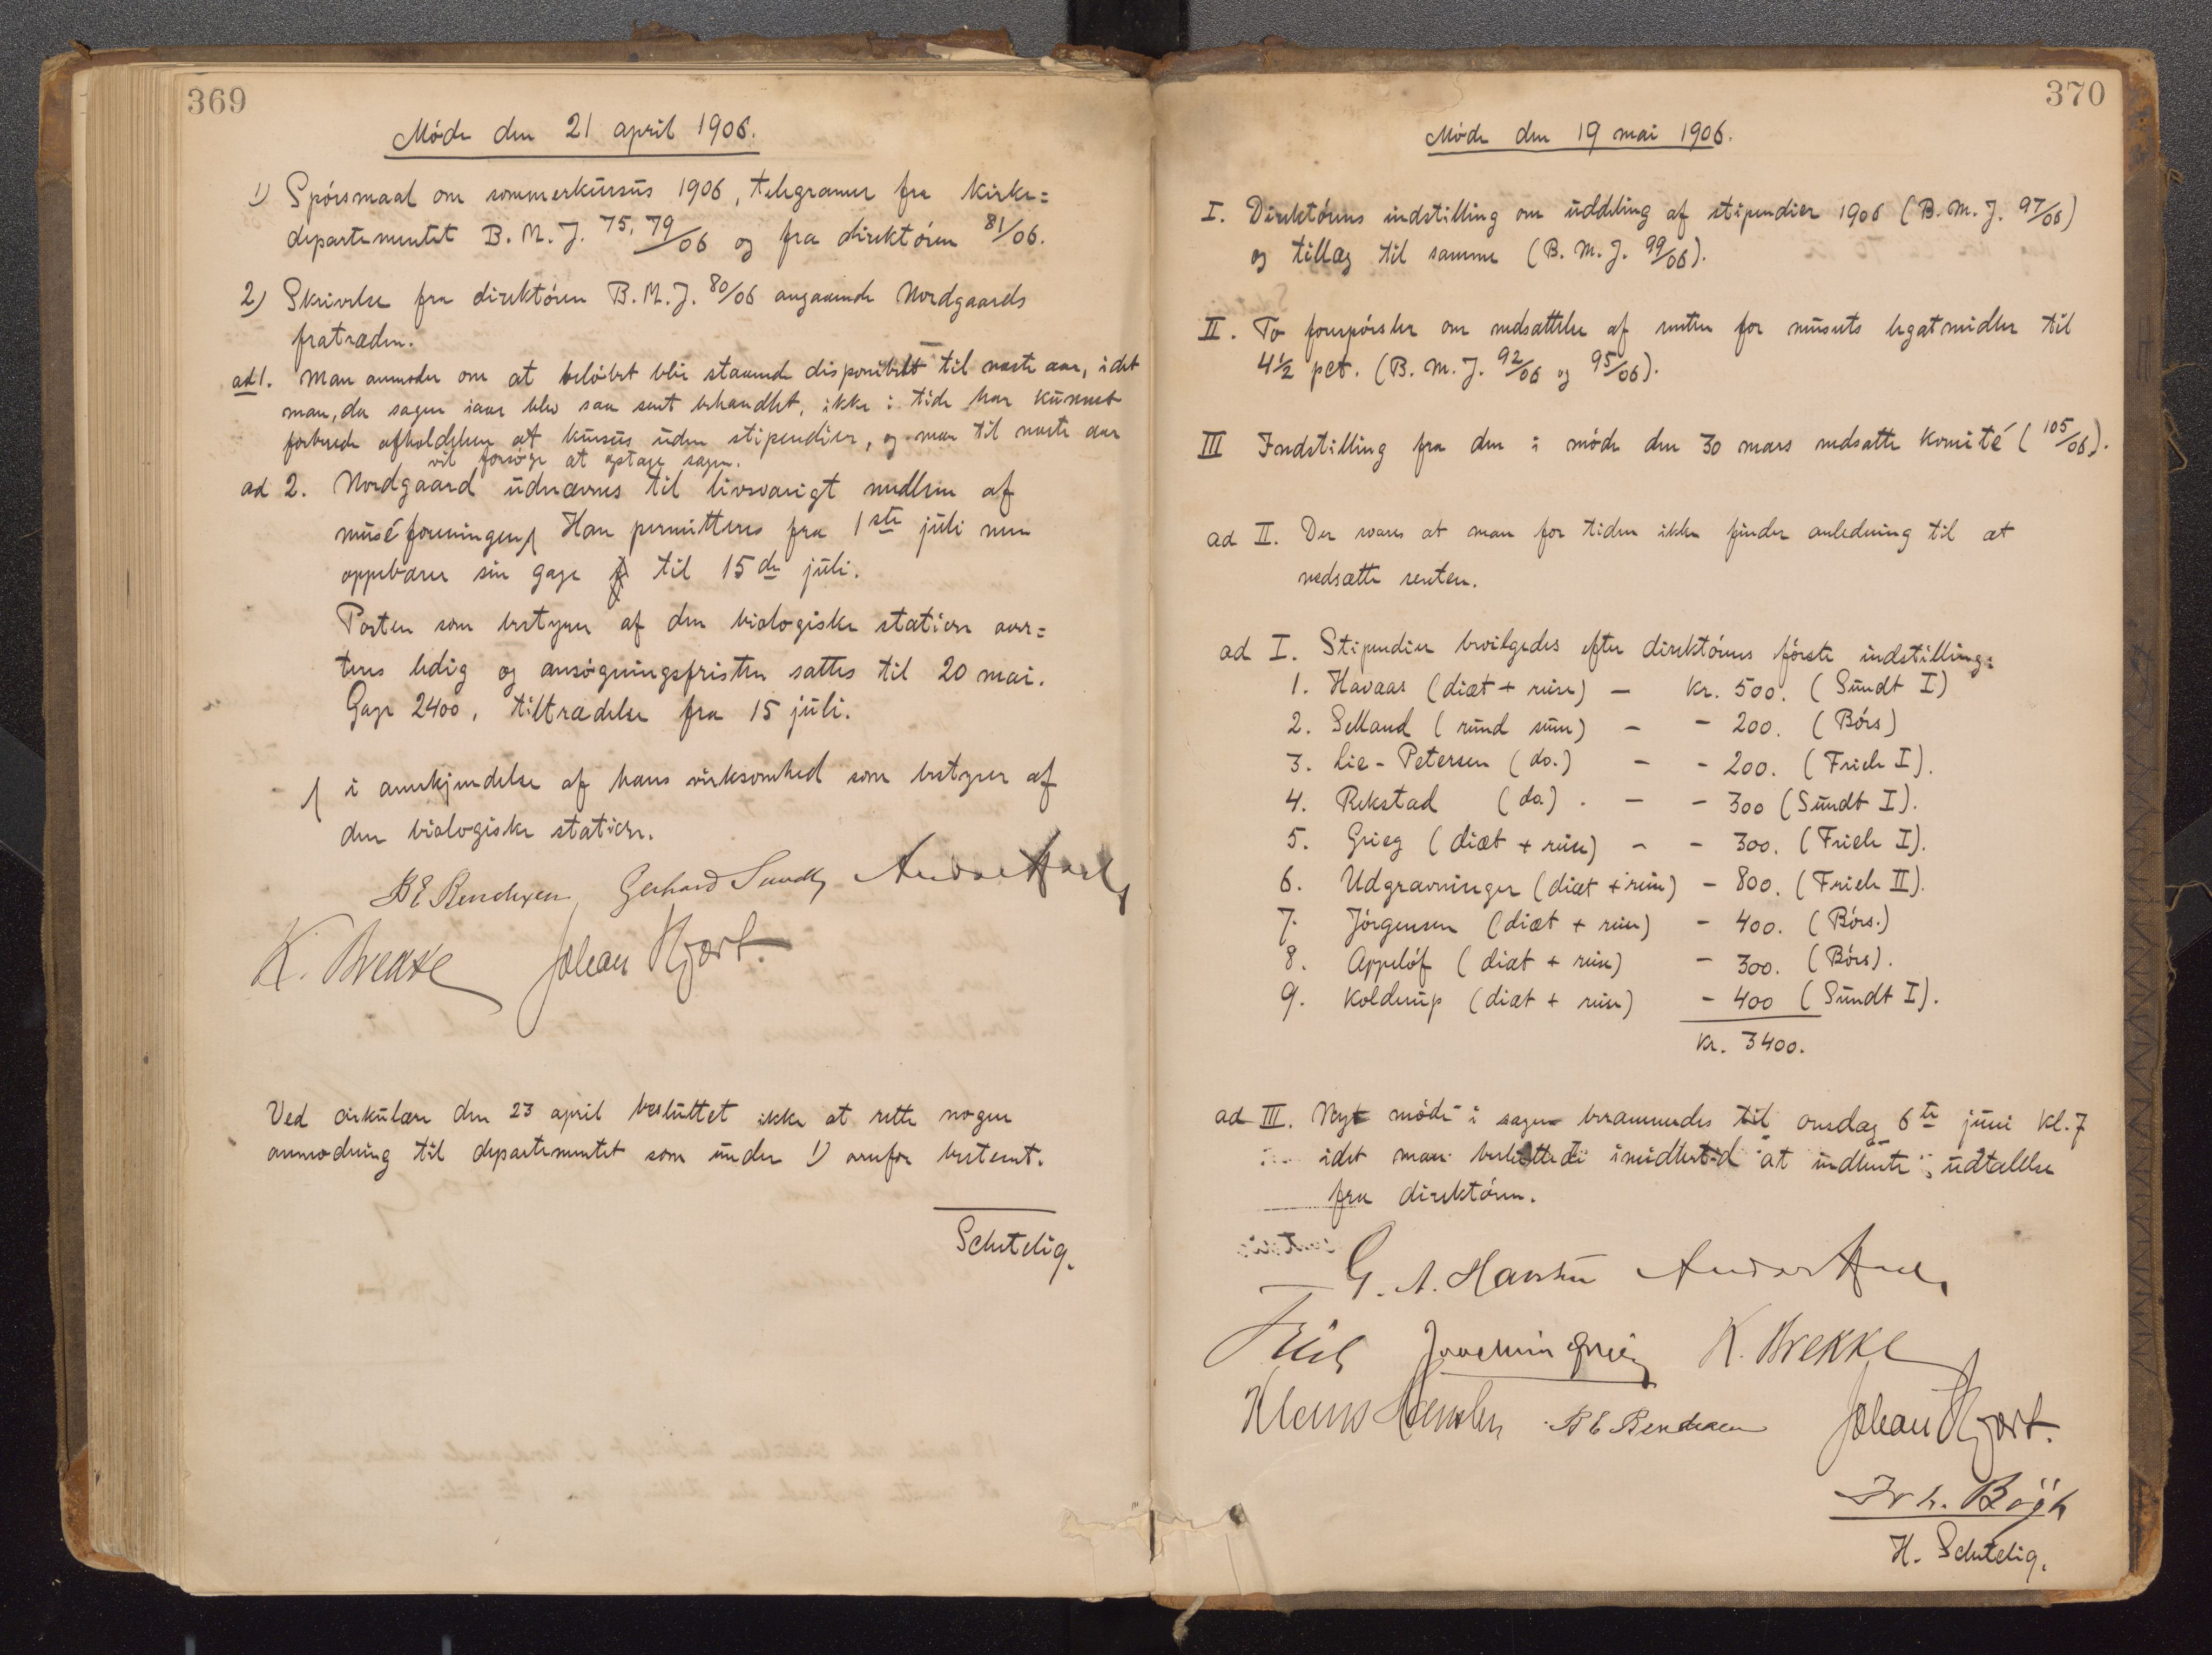 369
Møde den 21 april 1906.
1) Spørsmaal om sommerkursus 1906, telegramer fra Kirke=
departementet B. M. J. 75, 79/06 og fra direktøren 81/06.
2) Skrivelse fra direktøren B. M. J. 80/06 angaaende Nordgaards
fratræden.
ad 1. Man anmoder om at beløbet blir staaende disponibelt til næste aar, idet
man, da sagen iaar blev saa sent behandlet, ikke i tide har kunnet
forberede afholdelsen af kursus uden stipendier, og man til næste aar
vil forsøge at optage sagen.
ad 2. Nordgaard udnævnes til livsvarigt medlem af
muséforeningen. Han permitteres fra 1ste juli men
oppebærer sin gage til 15de juli.
Posten som bestyrer af den biologiske station aver=
teres ledig og ansøgningsfristen sættes til 20 mai.
Gage 2400, tiltrædelse fra 15 juli.
i anerkjendelse af hans virksomhed som bestyrer af
den biologiske station.
B E Bendixen Gerhard Sundt
K. Brekke Johan Hjort.
Ved cirkulære den 23 april besluttet ikke at rette nogen
anmodning til departementet som under 1) ovenfor bestemt.
Schetelig.
370
Møde den 19 mai 1906.
I. Direktørens indstilling om uddeling af stipendier 1906 (B. M. J. 97/06)
og tillæg til samme (B. M. J. 99/06).
II. To forespørsler om nedsættelse af renten for museets legatmidler til
4½ pct. (B. M. J. 92/06 og 95/06).
III Indstilling fra den i møde den 30 mars nedsatte komité (105/06).
ad II. Der svares at man for tiden ikke finder anledning til at
nedsætte renten.
ad I. Stipendier bevilgedes efter direktørens første indstilling:
1. Havaas (diæt + reise) – Kr. 500. (Sundt I)
2. Selland (rund sum) – - 200. (Børs)
3. Lie-Petersen (do.) – - 200. (Friele I).
4. Rekstad (do.) . – - 300 (Sundt I).
5. Grieg (diæt + reise) – - 300. (Friele I).
6. Udgravninger (diæt + reise) - 800. (Friele II).
7. Jørgensen (diæt + reise) - 400. (Børs.)
8. Appeløf (diæt + reise) - 300. (Børs).
9. Kolderup (diæt + reise) - 400 (Sundt I).
Kr. 3400.
ad III. Nyt møde i sagen berammedes til onsdag 6te juni kl. 7
idet man besluttede imidlertid at indhente udtalelse
fra direktøren.
G. A. Hansen
Friele Joachim Grieg K. Brekke
Klaus Hanssen B E Bendixen Johan Hjort.
Joh. Bøgh
H. Schetelig.